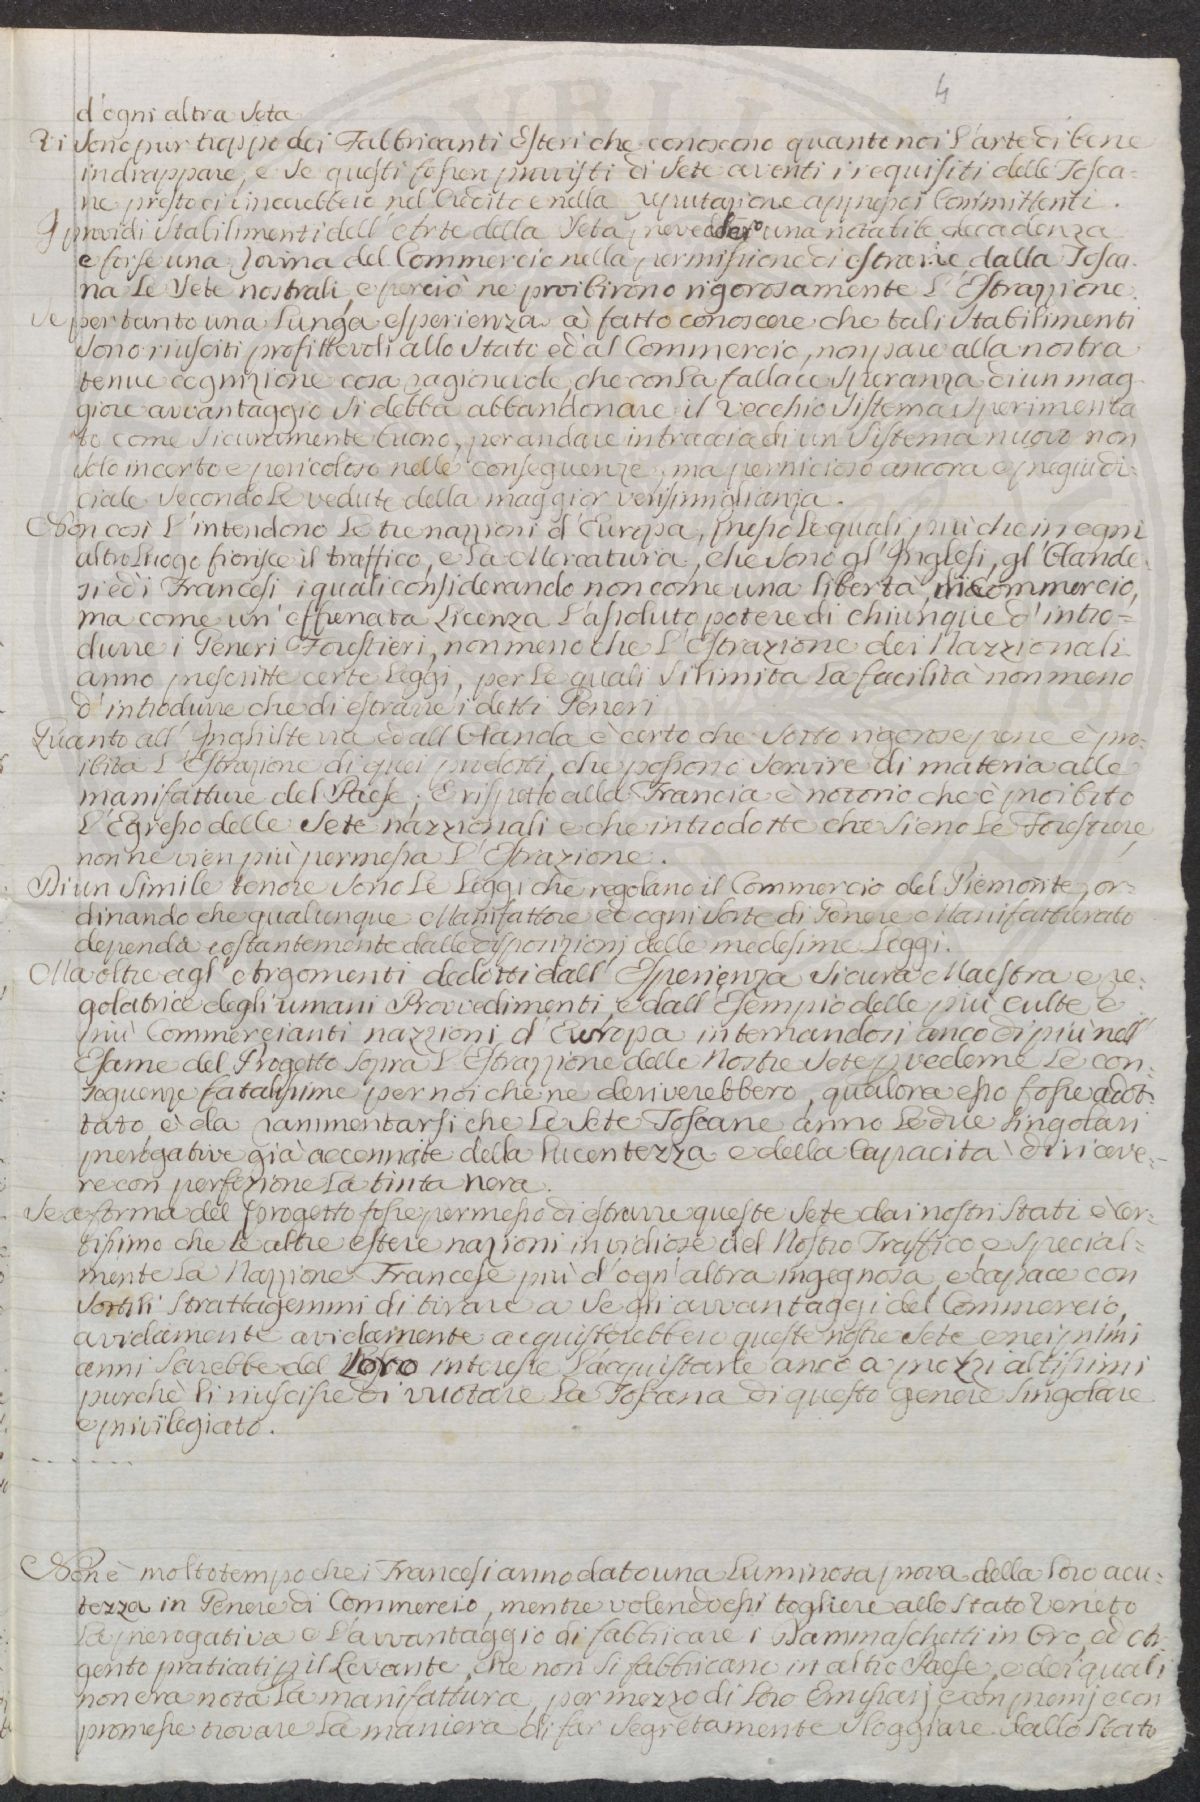 4
d'ogni altra Seta
Vi Sono pur troppo dei Fabbricanti Esteri che conoscono quanto noi l'arte di bene
indrappare, e Se questi fosser provvisti di Sete aventi i requisiti delle Tosca=
ne presto ci vincerebbero nel Credito e nella reputazione appresso i Committenti.
I provvidi Stabilimenti dell'Arte della Seta prevedder una notabile decadenza
e forse una rovina del Commercio nella permissione di estrarre dalla Tosca-
na Le Sete nostrali, e perciò ne proibirono rigorosamente L'Estrazzione.
Se pertanto una Lunga esperienza à fatto conoscere che tali Stabilimenti
Sono riusciti profittevoli allo Stato ed al Commercio, non pare alla nostra
tenue cognizione cosa ragionevole, che con La fallace Speranza di un mag-
giore avvantaggio Si debba abbandonare il Vecchio Sistema Sperimenta
to come Sicuramente buono, per andare in traccia di un Sistema nuovo non
Solo incerto e pericoloso nelle conseguenze, ma pernicioso ancora e pregiudi=
ciale Secondo Le vedute della maggior verisimiglianza.
Non così L'intendono Le tre nazzioni d'Europa, presso Le quali più che in ogni
altro Luogo fiorisce il traffico, e La Mercatura, che Sono gl'Inglesi, gl'Olande=
si ed i Francesi i quali considerando non come una libertà di Commercio,
ma come un'effrenata Licenza L'assoluto potere di chiunque d'intro=
durre i Generi Forestieri, non meno che L'Estrazione dei Nazzionali
anno prescritte certe Leggi, per Le quali Si limita La facilità non meno
d'introdurre che di estrarre i detti Generi
Quanto all'Inghilterra ed all'Olanda è certo che Sotto rigorose pene è pro=
ibita L'Estrazione di quei prodotti, che possono Servire di materia alle
manifatture del Paese; E rispetto alla Francia è notorio che è proibito
L'Egresso delle Sete nazzionali e che introdotte che Sieno Le Forestiere,
non ne vien più permessa L'Estrazione.
Di un Simile tenore Sono Le Leggi che regolano il Commercio del Piemonte, or=
dinando che qualunque Manifattore ed ogni Sorte di Genere Manifatturato
dependa costantemente dalle disposizioni delle medesime Leggi.
Ma oltre agl'Argomenti dedotti dall'Esperienza Sicura Maestra e re=
golatrice degli umani Provvedimenti, e dall'Esempio delle più culte e
più Commercianti nazzioni d'Europa internandosi anco di più nell'
Esame del Progetto Sopra L'Estrazzione delle Nostre Sete p vederne Le con=
seguenze fatalissime per noi che ne deriverebbero, qualora esso fosse adot=
tato, è da rammentarsi che Le Sete Toscane anno Le due Singolari
prerogative già accennate della Lucentezza e della Capacità di riceve=
re con perfezione La tinta nera.
Se a forma del progetto fosse permesso di estrarre queste Sete dai nostri Stati è Cer=
tissimo che le altre estere nazioni invidiose del Nostro Traffico, e Special=
mente La Nazzione Francese più d'ogn'altra ingegnosa, e capace con
Sottili Strattagemmi di tirare a Se gli avvantaggi del Commercio,
avidamente avidamente acquisterebbero queste nostre Sete, e nei primi
anni Sarebbe del Loro interesse L'acquistarle anco a prezzi altissimi
purchè li riuscisse di vuotare La Toscana di questo genere Singolare
e privilegiato.
. . . . . . .
Non è molto tempo che i Francesi anno dato una Luminosa prova della Loro acu=
tezza in Genere di Commercio, mentre volendo essi togliere allo Stato Veneto
La prerogativa e L'avvantaggio di fabbricare i Dammaschetti in Oro, ed Ar-
gento praticati p il Levante, che non Si fabbricano in altro Paese, e dei quali
non era nota La manifattura, per mezzo di Loro Emissarj e con premj e con
promesse trovare La maniera di far Segretamente Sloggiare dallo Stato